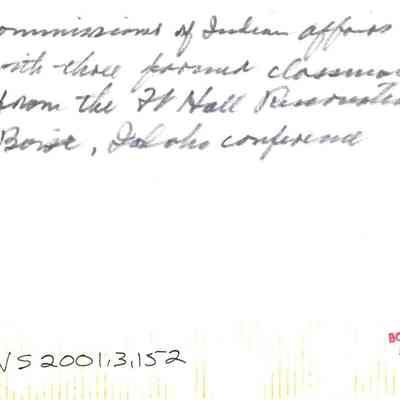 ommissioner of Indian affairs
with three former classma
from the Ft Hall Reservati
Boise, Idaho conference
VS2001.3.152
BO